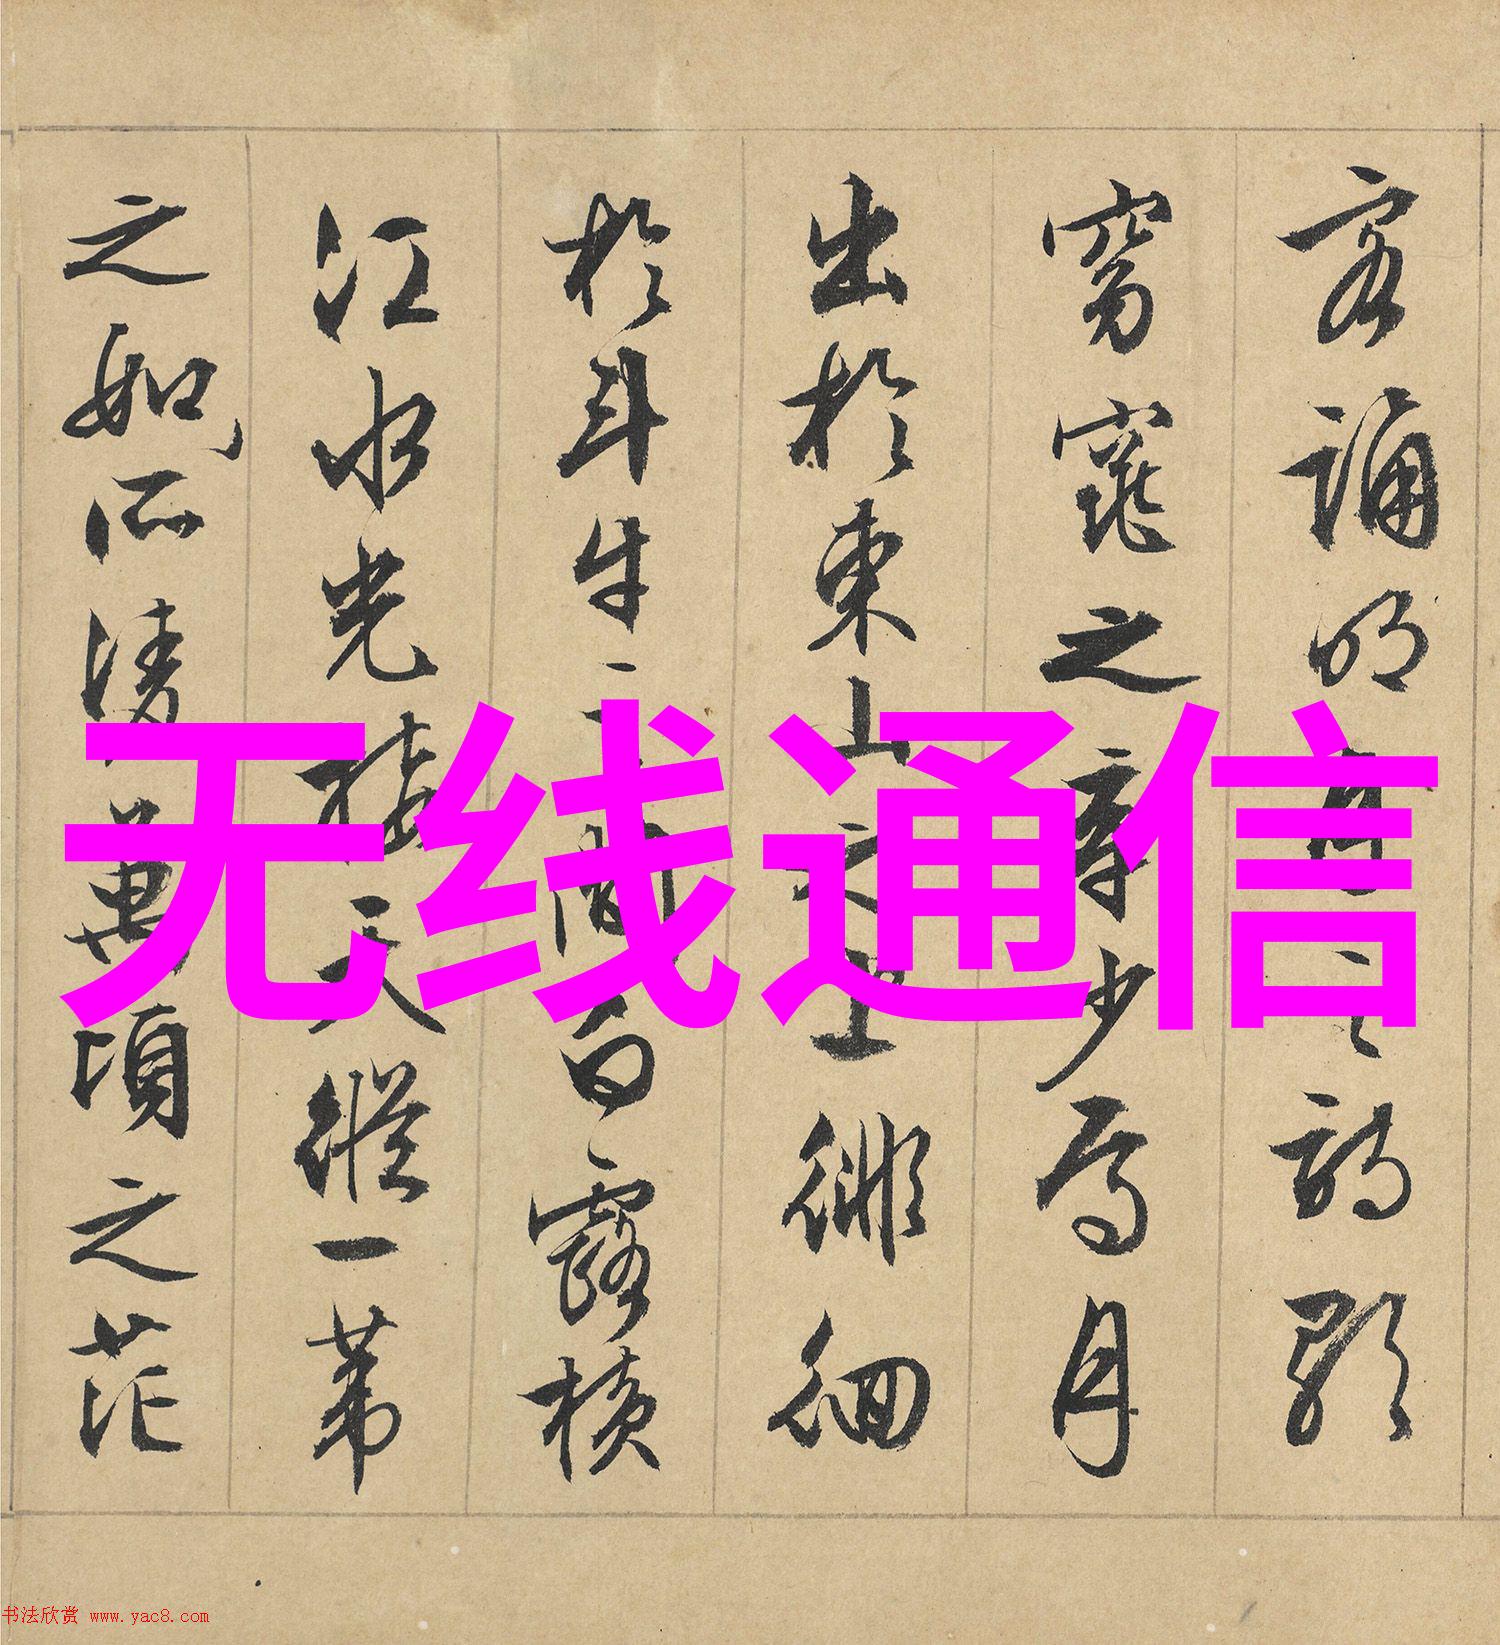 客誦明月之詩歌
窈窕之章少焉月
出於東山之上徘徊
於斗牛之間白露橫
江水光接天縱一葦
之如所凌萬頃之茫
无线通信
书法欣赏 www.yac8.com